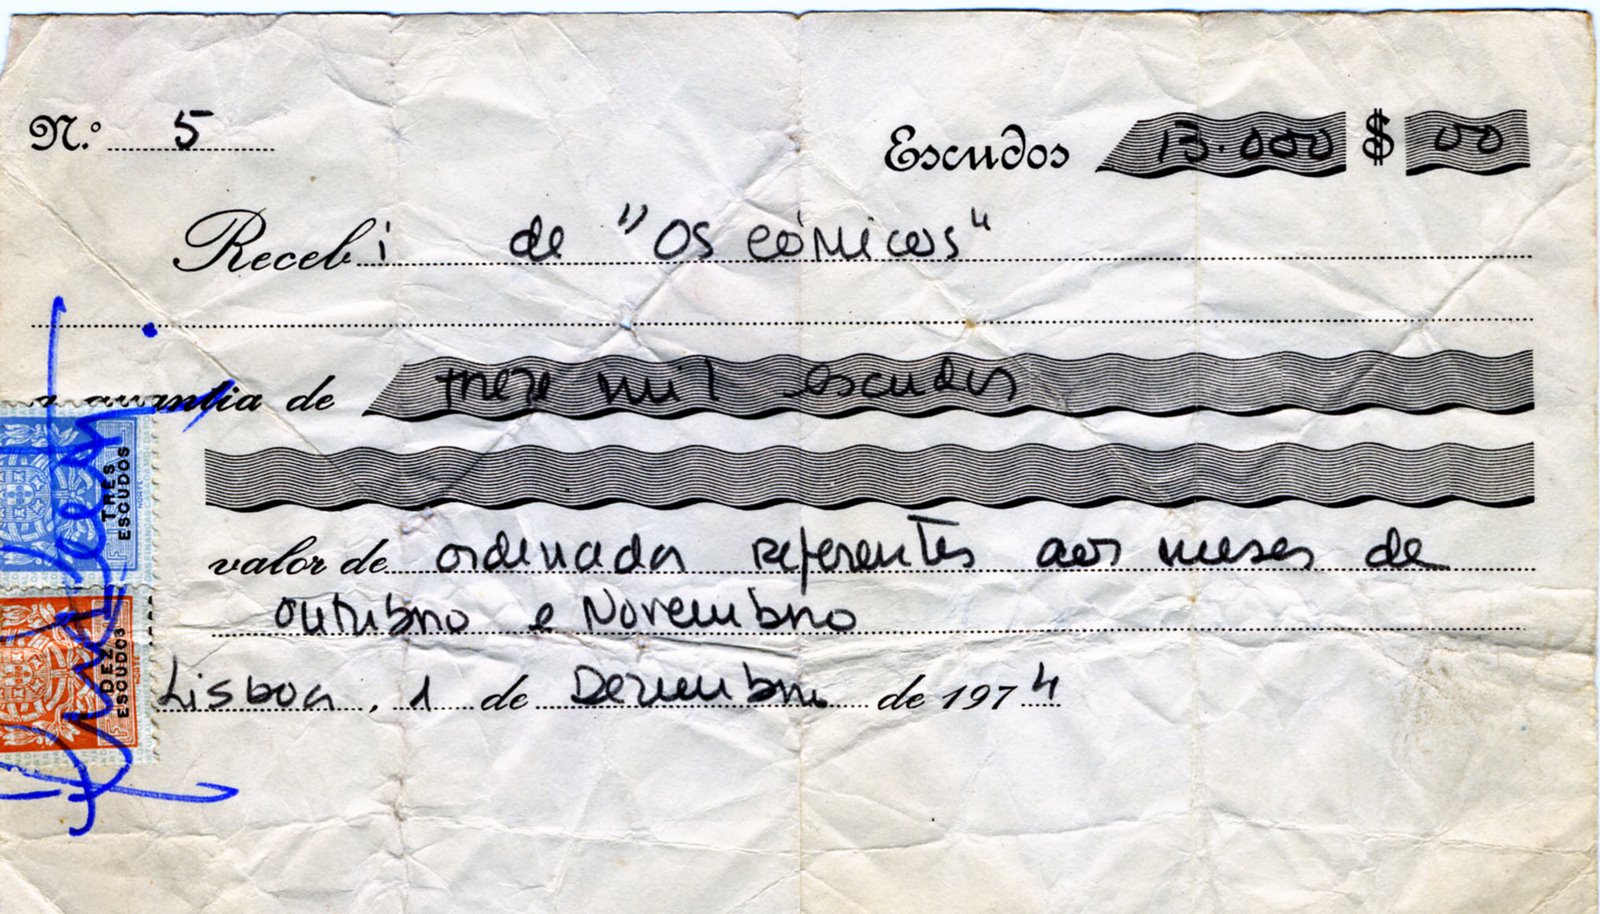 N.º 5 Escudos 13.000 $ 00
Recebi de "Os cómicos"
a quantia de treze mil escudos
valor de ordenados referentes aos meses de
outubro e Novembro
Lisboa, 1 de Dezembro de 1974
TRÊS
ESCUDOS
DEZ
ESCUDOS